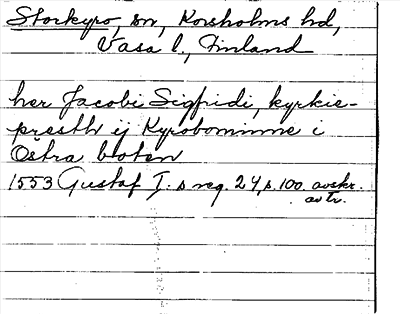 Storkyro, sn, Korsholms hd,
Vasa l., Finland
her Jacobi Sigfridi, kyrkie-
presth ij Kyrobominne i
Östra boten
1553 Gustaf I. s reg. 24, s. 100. avskr.
av tr.